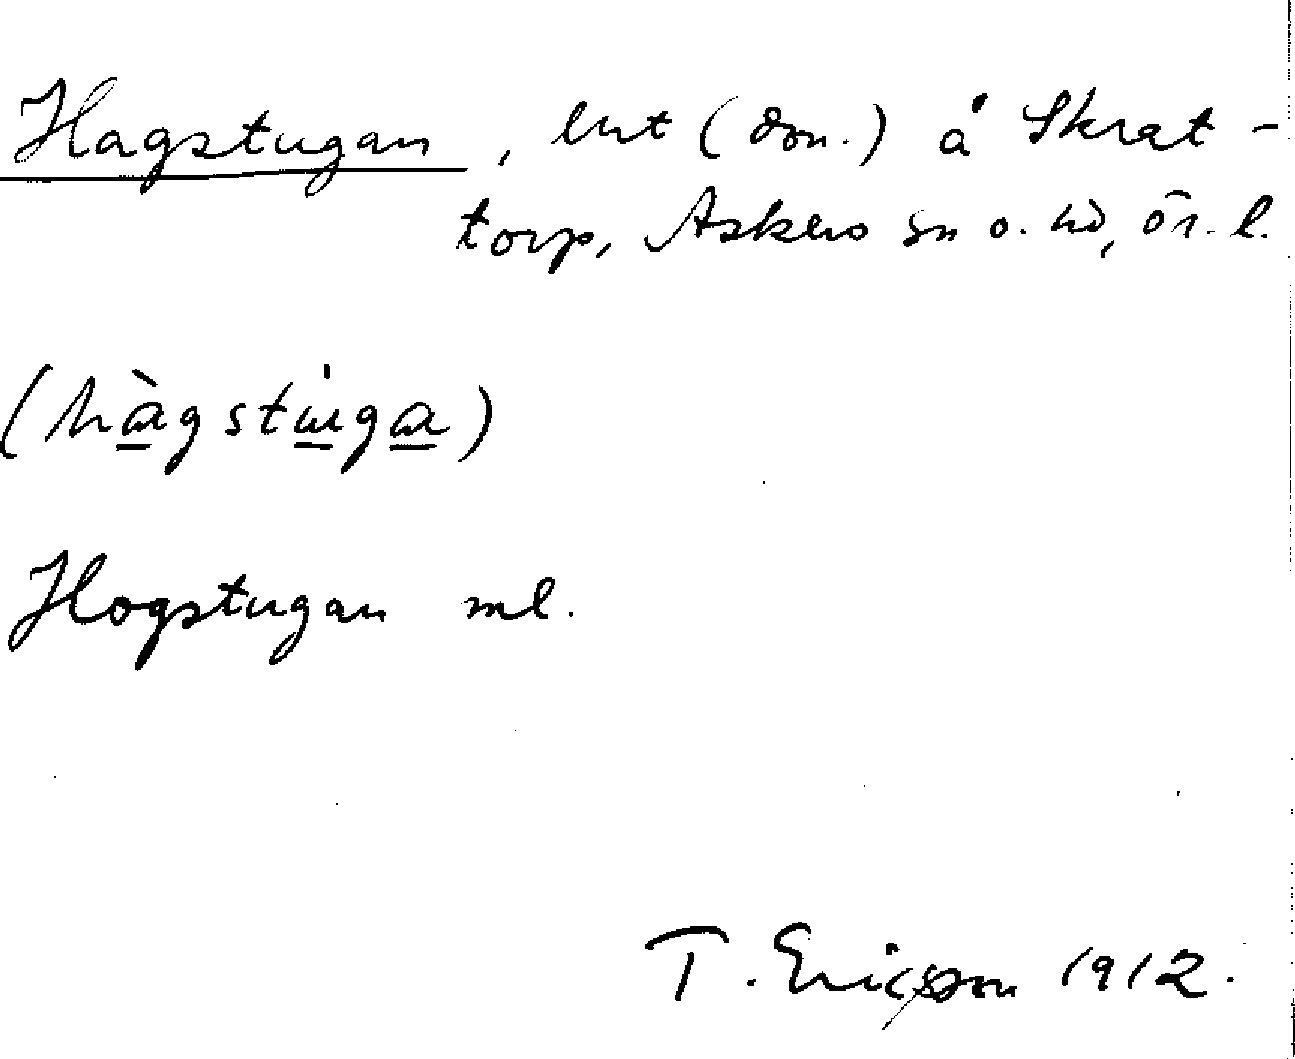 Hagstugan, lht (ăm.) å Skrat-
torp, Askers sn o. hd, ör. l.
(hàgstùga)
Hogstugan ml.
T. Ericsson 1912.